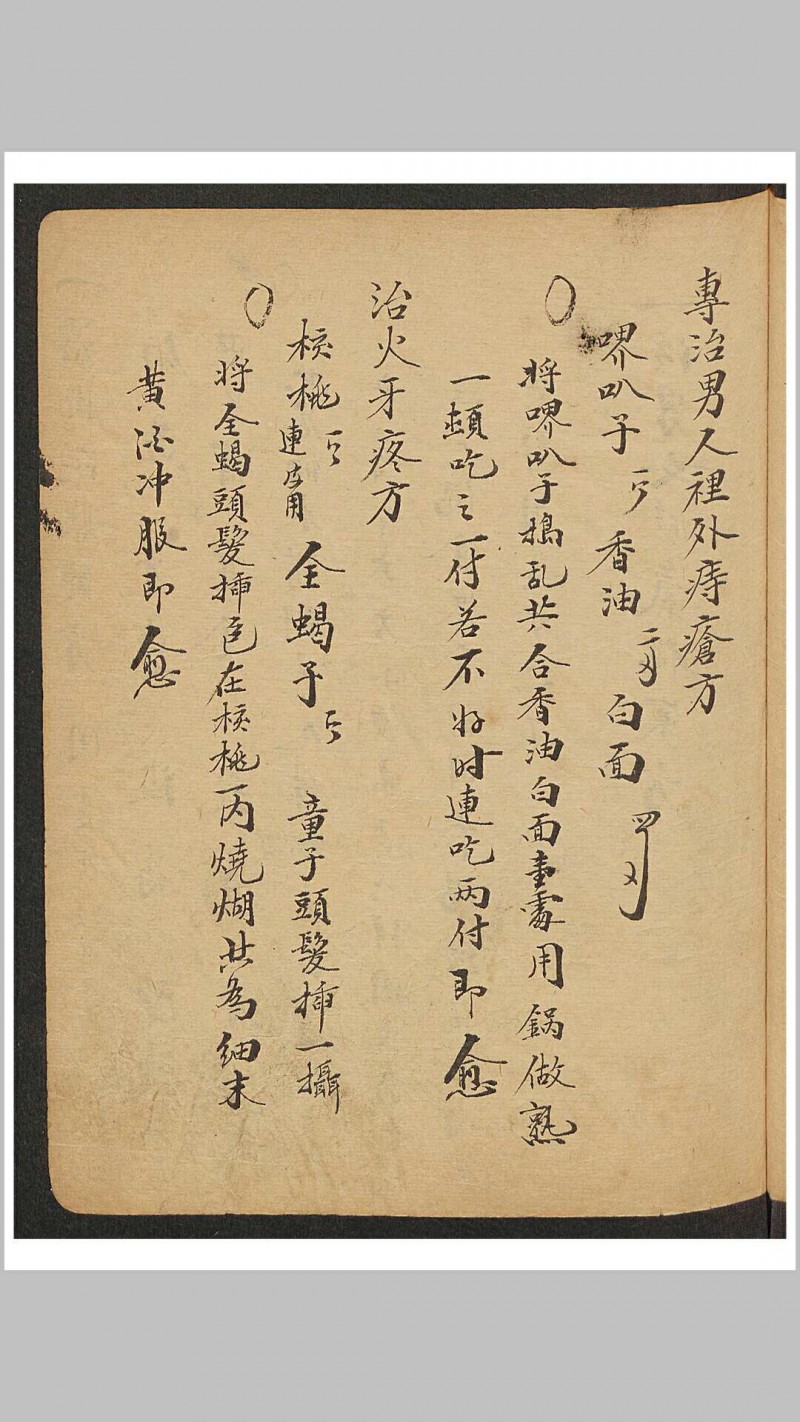 專治男人裡外痔瘡方
㗑叭子 香油 二两 白面 四两
將㗑叭子搗乱共合香油白面壹處用鍋做熟
一頓吃之一付若不好时連吃两付即愈
治火牙疼方
核桃 連 用 全蝎子 童子頭髮 一攝
將全蝎頭髮 在核桃丙燒煳共為细末
黄酒冲服即愈